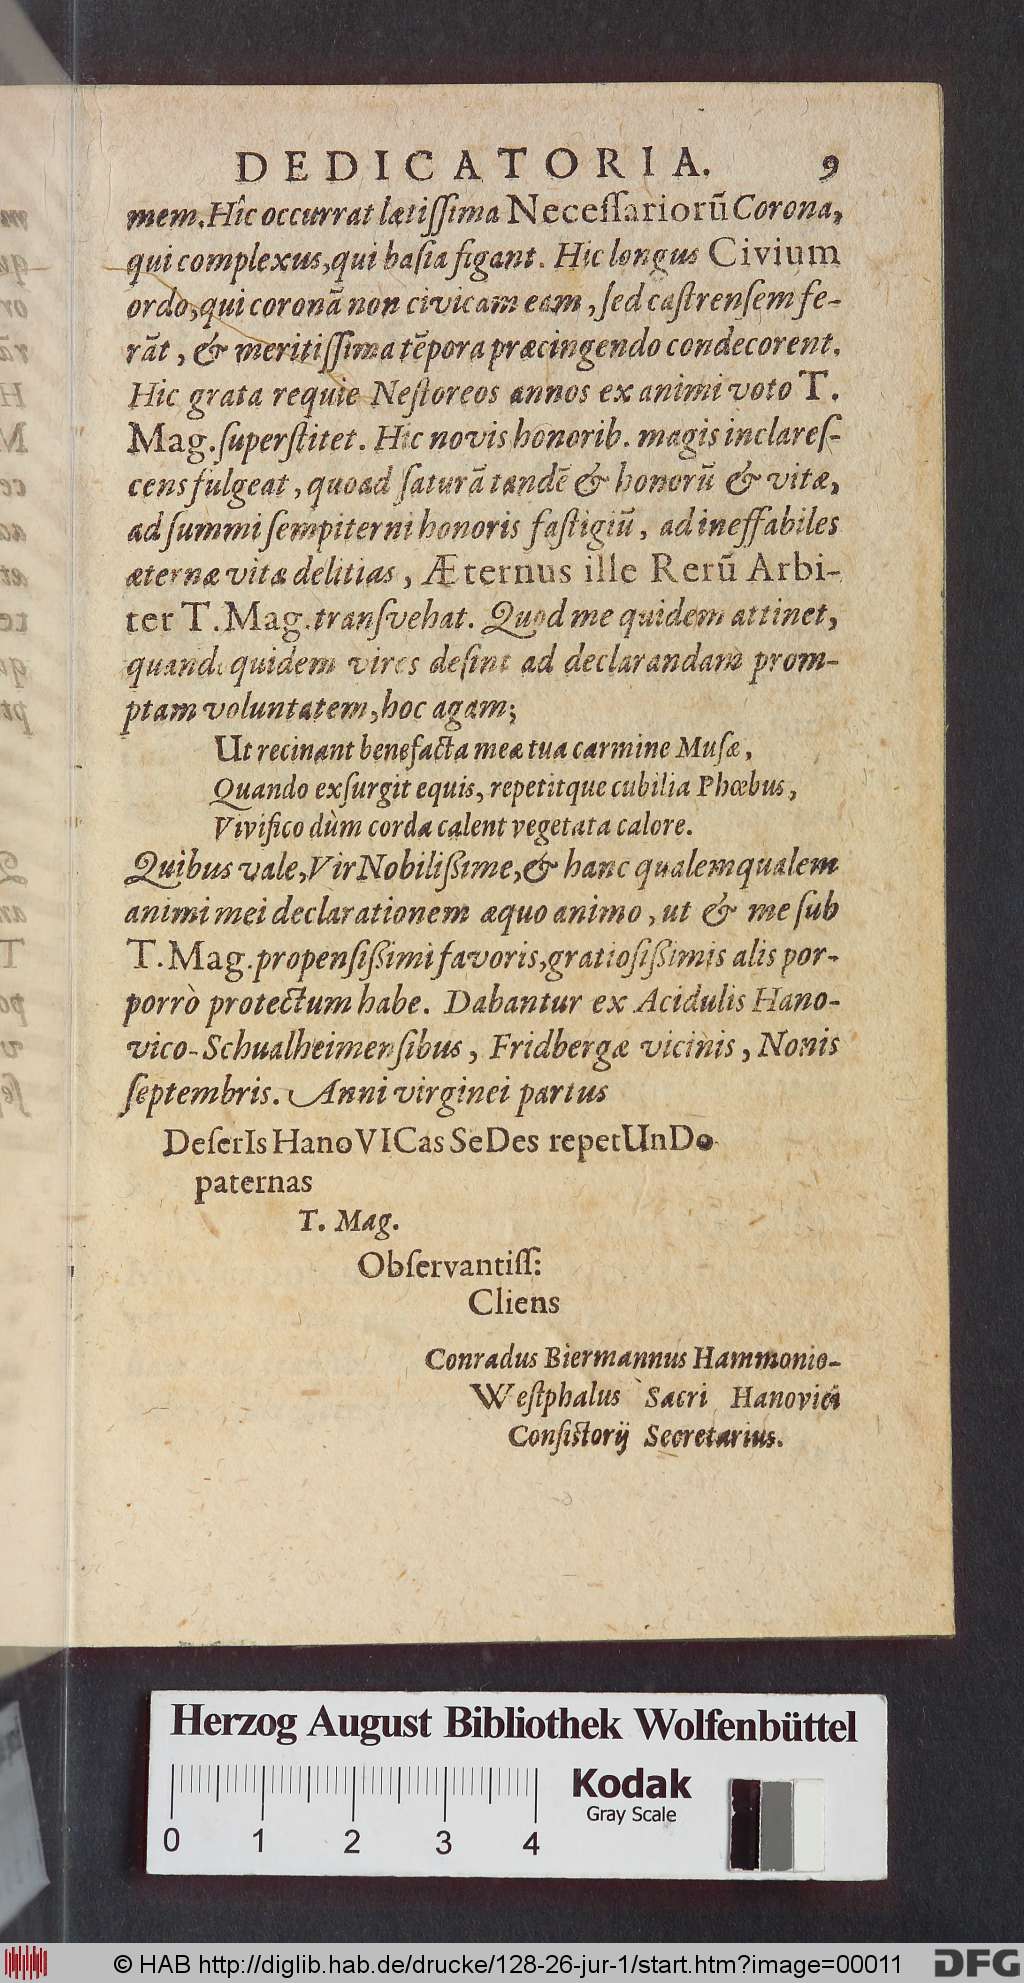 DEDICATORIA. 9
mem. Hîc occurrat lætiſſima Neceſſariorū Corona,
qui complexus, qui baſia figant. Hic longus Civium
ordo, qui coronā non civicam eam, ſed caſtrenſem fe-
rāt, & meritiſſima tēpora præcingendo condecorent.
Hic grata requie Neſtoreos annos ex animi voto T.
Mag. ſuperſtitet. Hic novis honorib. magis inclareſ-
cens fulgeat, quoad ſaturā tandē & honorū & vitæ,
ad ſummi ſempiterni honoris faſtigiū, ad ineffabiles
æternæ vitæ delitias, Æternus ille Rerū Arbi-
ter T. Mag. tranſvehat. Quod me quidem attinet,
quidem vires deſint ad declarandam prom-
ptam voluntatem, hoc agam;
Ut recinant benefacta meæ tua carmine Muſæ,
Quando exſurgit equis, repetitque cubilia Phœbus,
Vivifico dùm corda calent vegetata calore.
Quibus vale, Vir Nobilißime, & hanc qualemqualem
animi mei declarationem æquo animo, ut & me ſub
T. Mag. propenſißimi favoris, gratioſißimis alis por-
porrò protectum habe. Dabantur ex Acidulis Hano-
vico-Schualheimenſibus, Fridbergæ vicinis, Nonis
ſeptembris. Anni virginei partus
DeſerIs HanoVICas SeDes repetUnDo
paternas
T. Mag.
Obſervantiſſ:
Cliens
Conradus Biermannus Hammonio-
Weſtphalus Sacri Hanovici
Conſiſtorij Secretarius.
Herzog August Bibliothek Wolfenbüttel
Kodak
Gray Scale
0 1 2 3 4
© HAB http://diglib.hab.de/drucke/128-26-jur-1/start.htm?image=00011 DFG